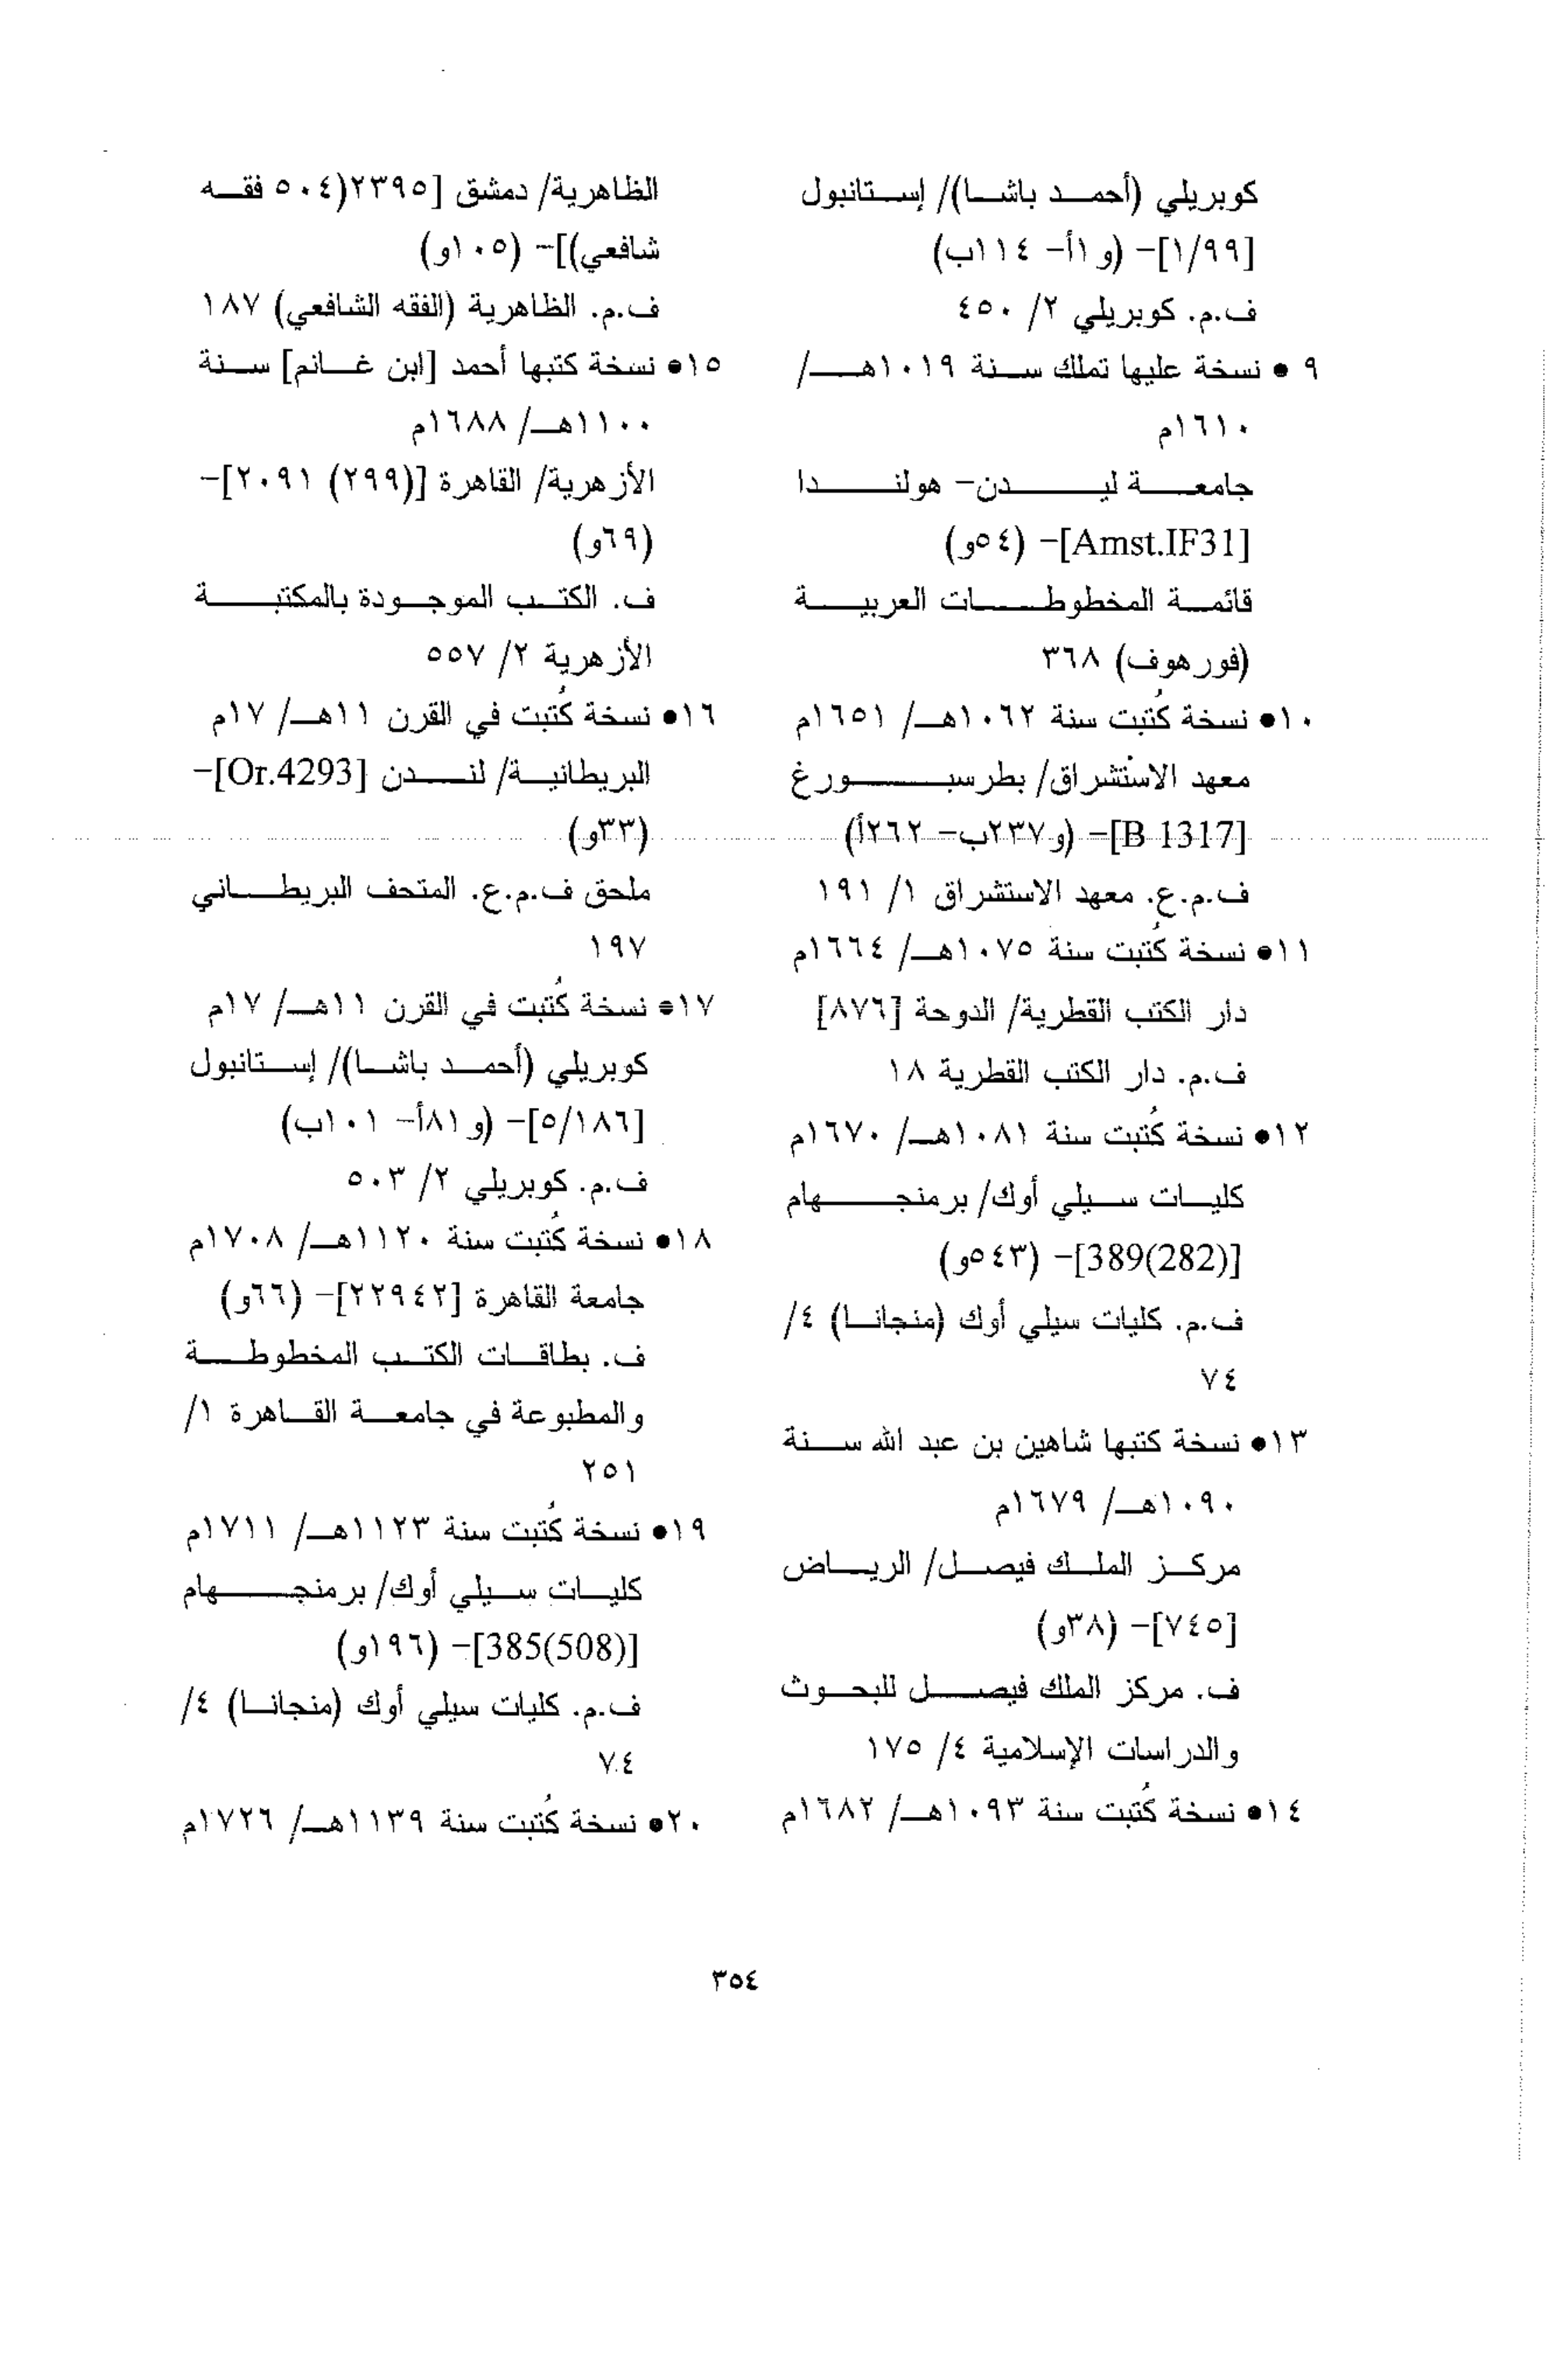 كوبريلي (أحمد باشا)/ إستانبول
[١/٩٩]- (و ١أ- ١١٤ب)
ف.م. كوبريلي ٢/ ٤٥٠
٩ ● نسخة عليها تملك سنة ١٠١٩هـ/
١٦١٠م
جامعة ليدن- هولندا
[Amst.IF31]- (٥٤و)
قائمة المخطوطات العربية
(فورهوف) ٣٦٨
١٠● نسخة كُتبت سنة ١٠٦٢هـ/ ١٦٥١م
معهد الاستشراق/ بطرسبورغ
[B 1317]- (و ٢٣٧ب- ٢٦٢أ)
ف.م.ع. معهد الاستشراق ١/ ١٩١
١١● نسخة كُتبت سنة ١٠٧٥هـ/ ١٦٦٤م
دار الكتب القطرية/ الدوحة [٨٧٦]
ف.م. دار الكتب القطرية ١٨
١٢● نسخة كُتبت سنة ١٠٨١هـ/ ١٦٧٠م
كليات سيلي أوك/ برمنجهام
[389(282)]- (٥٤٣و)
ف.م. كليات سيلي أوك (منجانا) ٤/
٧٤
١٣● نسخة كتبها شاهين بن عبد الله سنة
١٠٩٠هـ/ ١٦٧٩م
مركز الملك فيصل/ الرياض
[٧٤٥]- (٣٨و)
ف. مركز الملك فيصل للبحوث
والدراسات الإسلامية ٤/ ١٧٥
١٤● نسخة كُتبت سنة ١٠٩٣هـ/ ١٦٨٢م
الظاهرية/ دمشق [٢٣٩٥(٥٠٤ فقه
شافعي)]- (١٠٥و)
ف.م. الظاهرية (الفقه الشافعي) ١٨٧
١٥● نسخة كتبها أحمد [ابن غانم] سنة
١١٠٠هـ/ ١٦٨٨م
الأزهرية/ القاهرة [(٢٩٩) ٢٠٩١]-
(٦٩و)
ف. الكتب الموجودة بالمكتبة
الأزهرية ٢/ ٥٥٧
١٦● نسخة كُتبت في القرن ١١هـ/ ١٧م
البريطانية/ لندن [Or.4293]-
(٣٣و)
ملحق ف.م.ع. المتحف البريطاني
١٩٧
١٧● نسخة كُتبت في القرن ١١هـ/ ١٧م
كوبريلي (أحمد باشا)/ إستانبول
[٥/١٨٦]- (و ٨١أ- ١٠١ب)
ف.م. كوبريلي ٢/ ٥٠٣
١٨● نسخة كُتبت سنة ١١٢٠هـ/ ١٧٠٨م
جامعة القاهرة [٢٢٩٤٢]- (٦٦و)
ف. بطاقات الكتب المخطوطة
والمطبوعة في جامعة القاهرة ١/
٢٥١
١٩● نسخة كُتبت سنة ١١٢٣هـ/ ١٧١١م
كليات سيلي أوك/ برمنجهام
[385(508)]- (١٩٦و)
ف.م. كليات سيلي أوك (منجانا) ٤/
٧٤
٢٠● نسخة كُتبت سنة ١١٣٩هـ/ ١٧٢٦م
٣٥٤